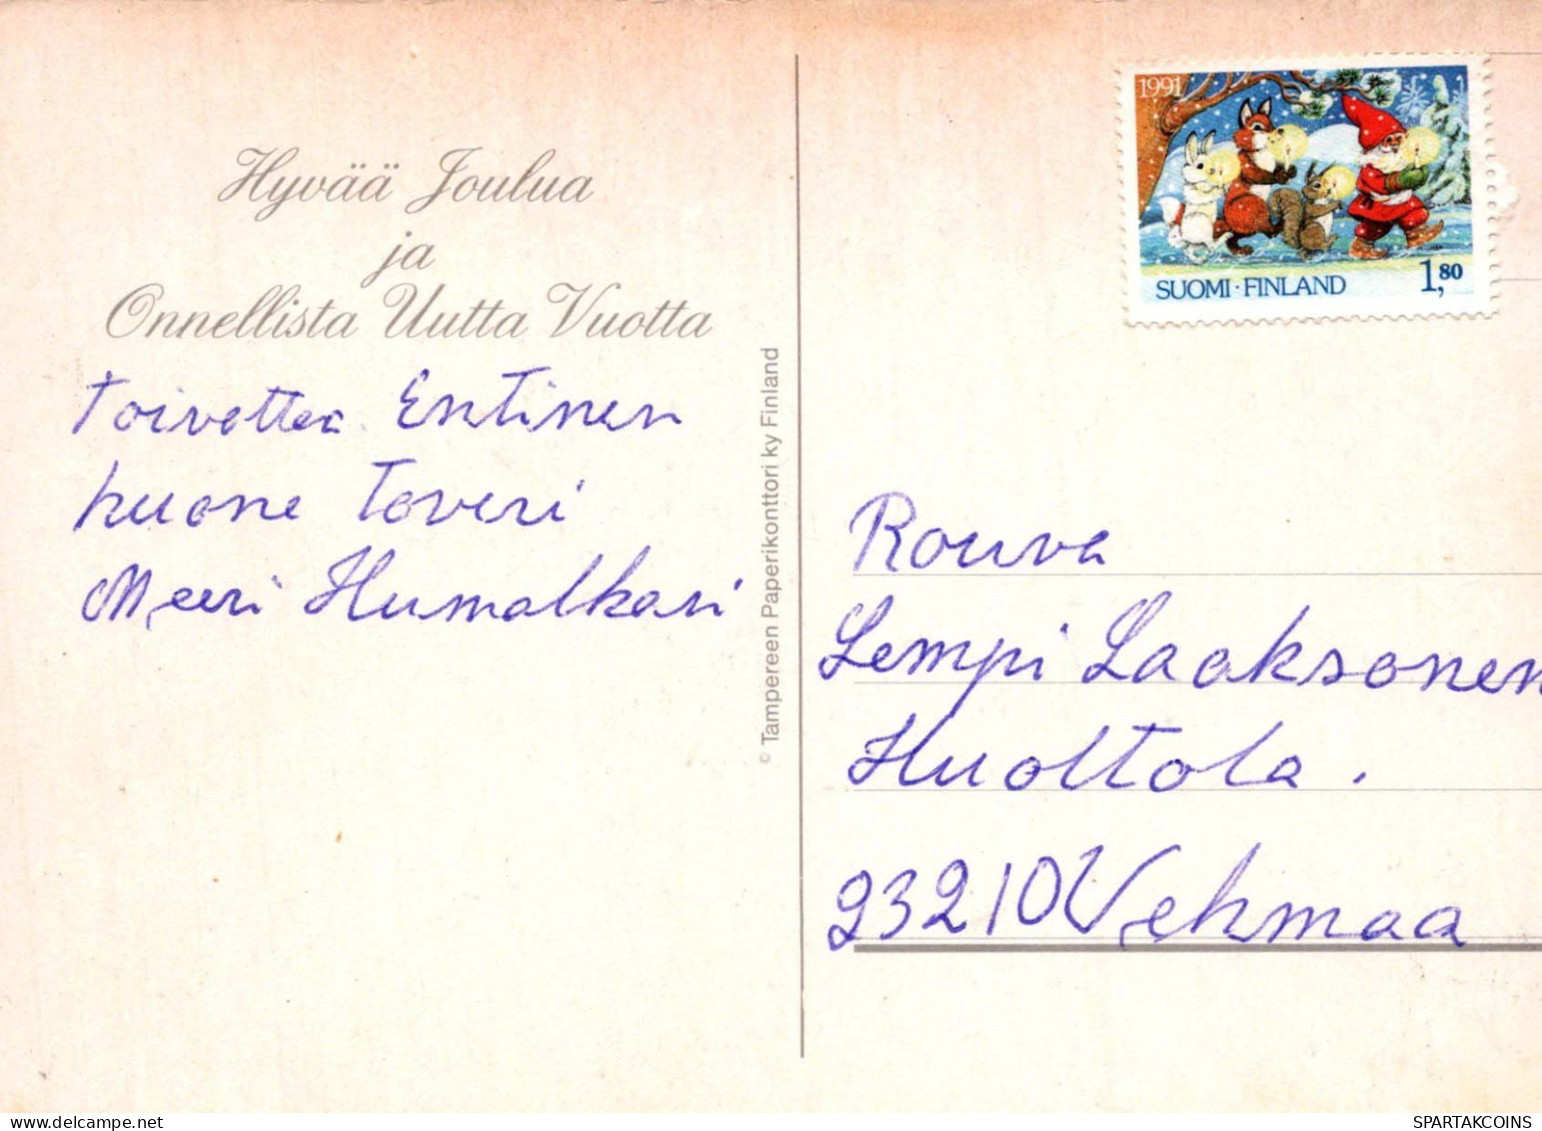 Hyvää Joulua
ja
Onnellista Uutta Vuotta
Toivottaa Entinen
huone Toveri
Meeri Humalkari
© Tampereen Paperikonttori ky Finland
1991
SUOMI·FINLAND 1,80
Rouva
Lempi Laaksonen
Huoltola.
23210 Vehmaa
SPARTAKCOINS